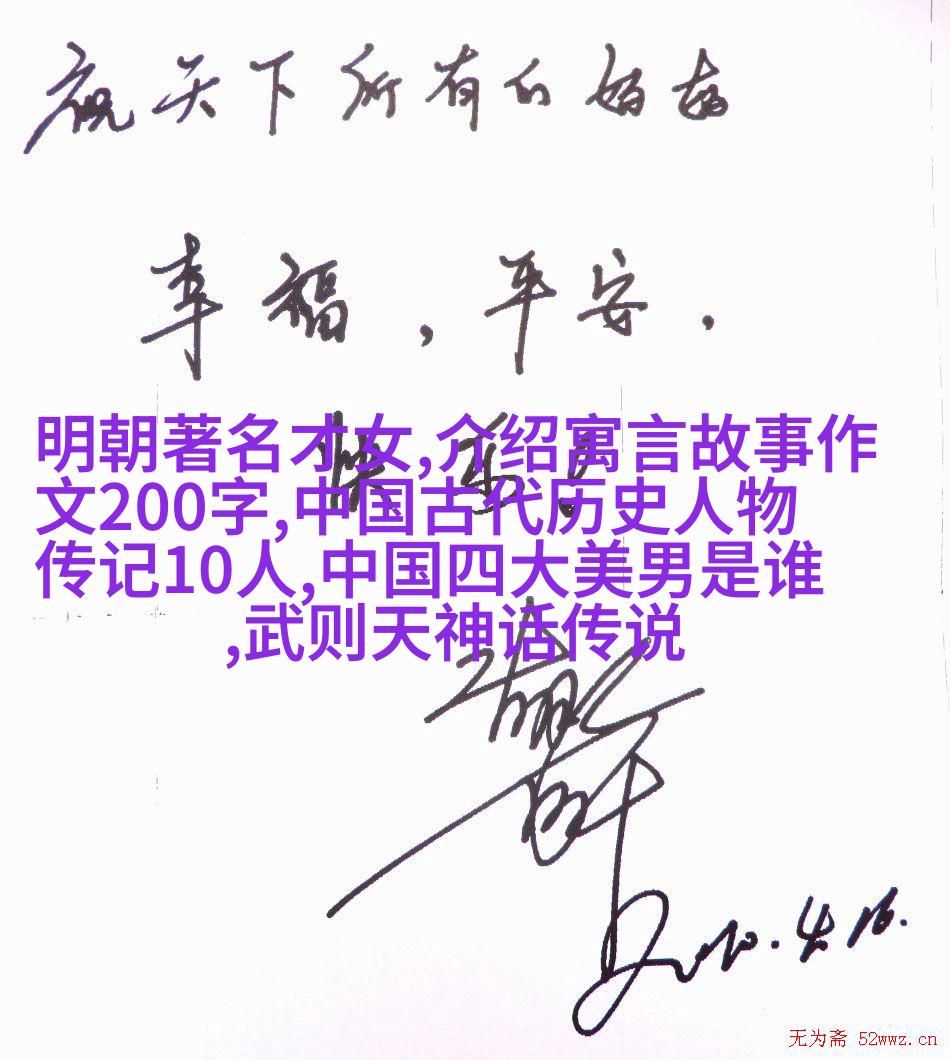 祝天下所有的妈妈
幸福，平安，
快乐！
明朝著名才女,介绍寓言故事作
文200字,中国古代历史人物
传记10人,中国四大美男是谁
,武则天神话传说
2010.4.16.
无为斋 52wwz.cn